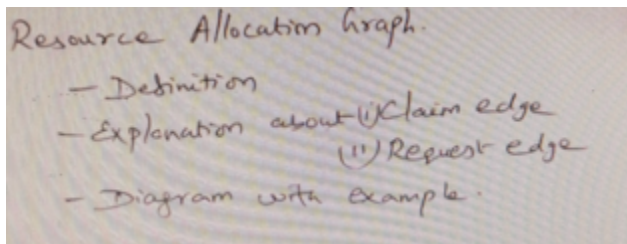 Resource Allocation Graph.
- Definition
- Explanation about (i) Claim edge
(ii) Request edge
- Diagram with example.